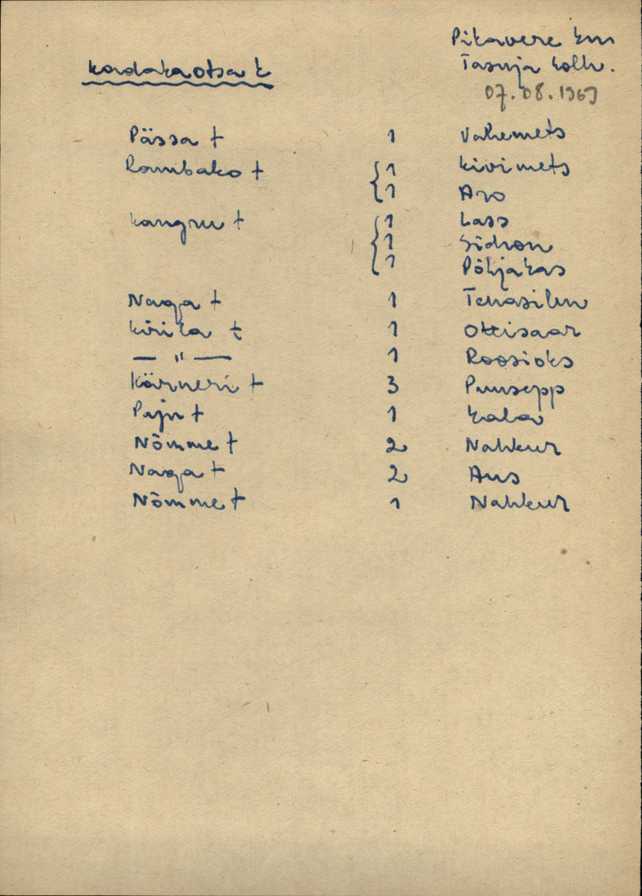 Pikavere km
Kadakaotsa k Tasuja kolh.
07.08.1969
Pässa t 1 Vahemets
Rambako t 1 Kivimets
1 Aro
Kangru t 1 Lass
1 Sidron
1 Põhjakas
Naga t 1 Tenasilm
Kirika t 1 Ottisaar
— " — 1 Roosioks
Kärneri t 3 Puusepp
Paju t 1 Kala
Nõmme t 2 Nahkur
Naga t 2 Aus
Nõmme t 1 Nahkur